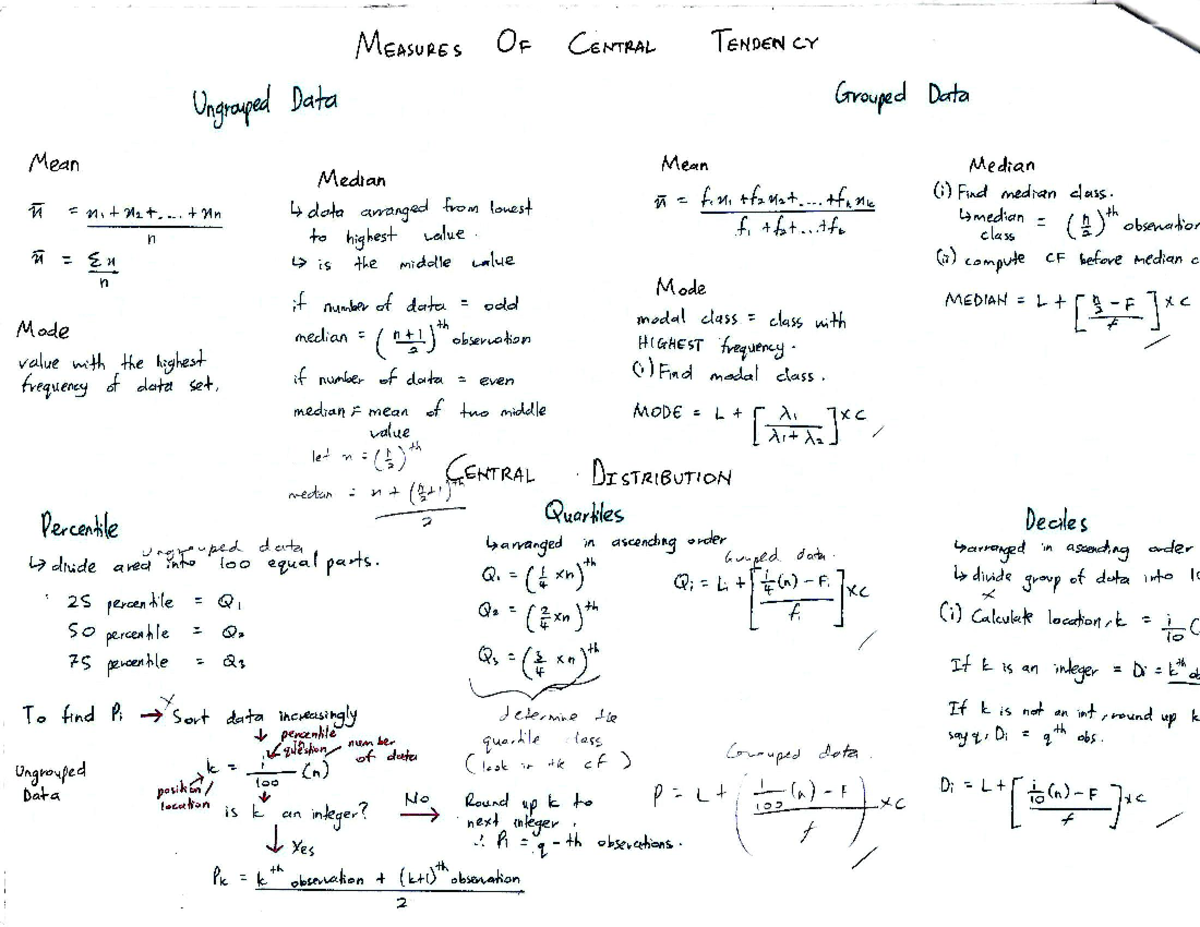 MEASURES OF CENTRAL TENDENCY
Ungrouped Data
Mean
x̄ = x₁ + x₂ + .... + xₙ / n
x̄ = Σx / n
Mode
value with the highest
frequency of data set.
Median
↳ data arranged from lowest
to highest value.
↳ is the middle value
if number of data = odd
median = (n+1 / 2)ᵗʰ observation
if number of data = even
median = mean of two middle
value
let x = (n/2)ᵗʰ
median = x + (n/2 + 1)ᵗʰ / 2
Grouped Data
Mean
x̄ = f₁x₁ + f₂x₂ + .... + fₖxₖ / f₁ + f₂ + ... + fₖ
Mode
modal class = class with
HIGHEST frequency.
(i) Find modal class.
MODE = L + [λ₁ / λ₁ + λ₂] × C
Median
(i) Find median class.
↳ median class = (n/2)ᵗʰ observation
(ii) compute CF before median c
MEDIAN = L + [n/2 - F / f] × C
CENTRAL DISTRIBUTION
Percentile
ungrouped data
↳ divide area into 100 equal parts.
25 percentile = Q₁
50 percentile = Q₂
75 percentile = Q₃
To find Pᵢ → Sort data increasingly
Ungrouped
Data
percentile
question
number
of data
k = i/100 (n)
position/
location
is k an integer?
No
Round up k to
next integer.
∴ Pᵢ = q-th observations.
Yes
Pₖ = kᵗʰ observation + (k+1)ᵗʰ observation / 2
Quartiles
↳ arranged in ascending order
Q₁ = (1/4 × n)ᵗʰ
Q₂ = (2/4 × n)ᵗʰ
Q₃ = (3/4 × n)ᵗʰ
determine the
quartile class
(look in the cf)
Grouped data.
Qᵢ = Lᵢ + [i/4 (n) - Fᵢ / fᵢ] × C
Grouped data.
P = L + (i/100 (n) - F / f) × C
Deciles
↳ arranged in ascending order
↳ divide group of data into 10
(i) Calculate location, k = i/10 (
If k is an integer = Dᵢ = kᵗʰ ob
If k is not an int, round up k
say q, Dᵢ = qᵗʰ obs.
Dᵢ = L + [i/10 (n) - F / f] × C